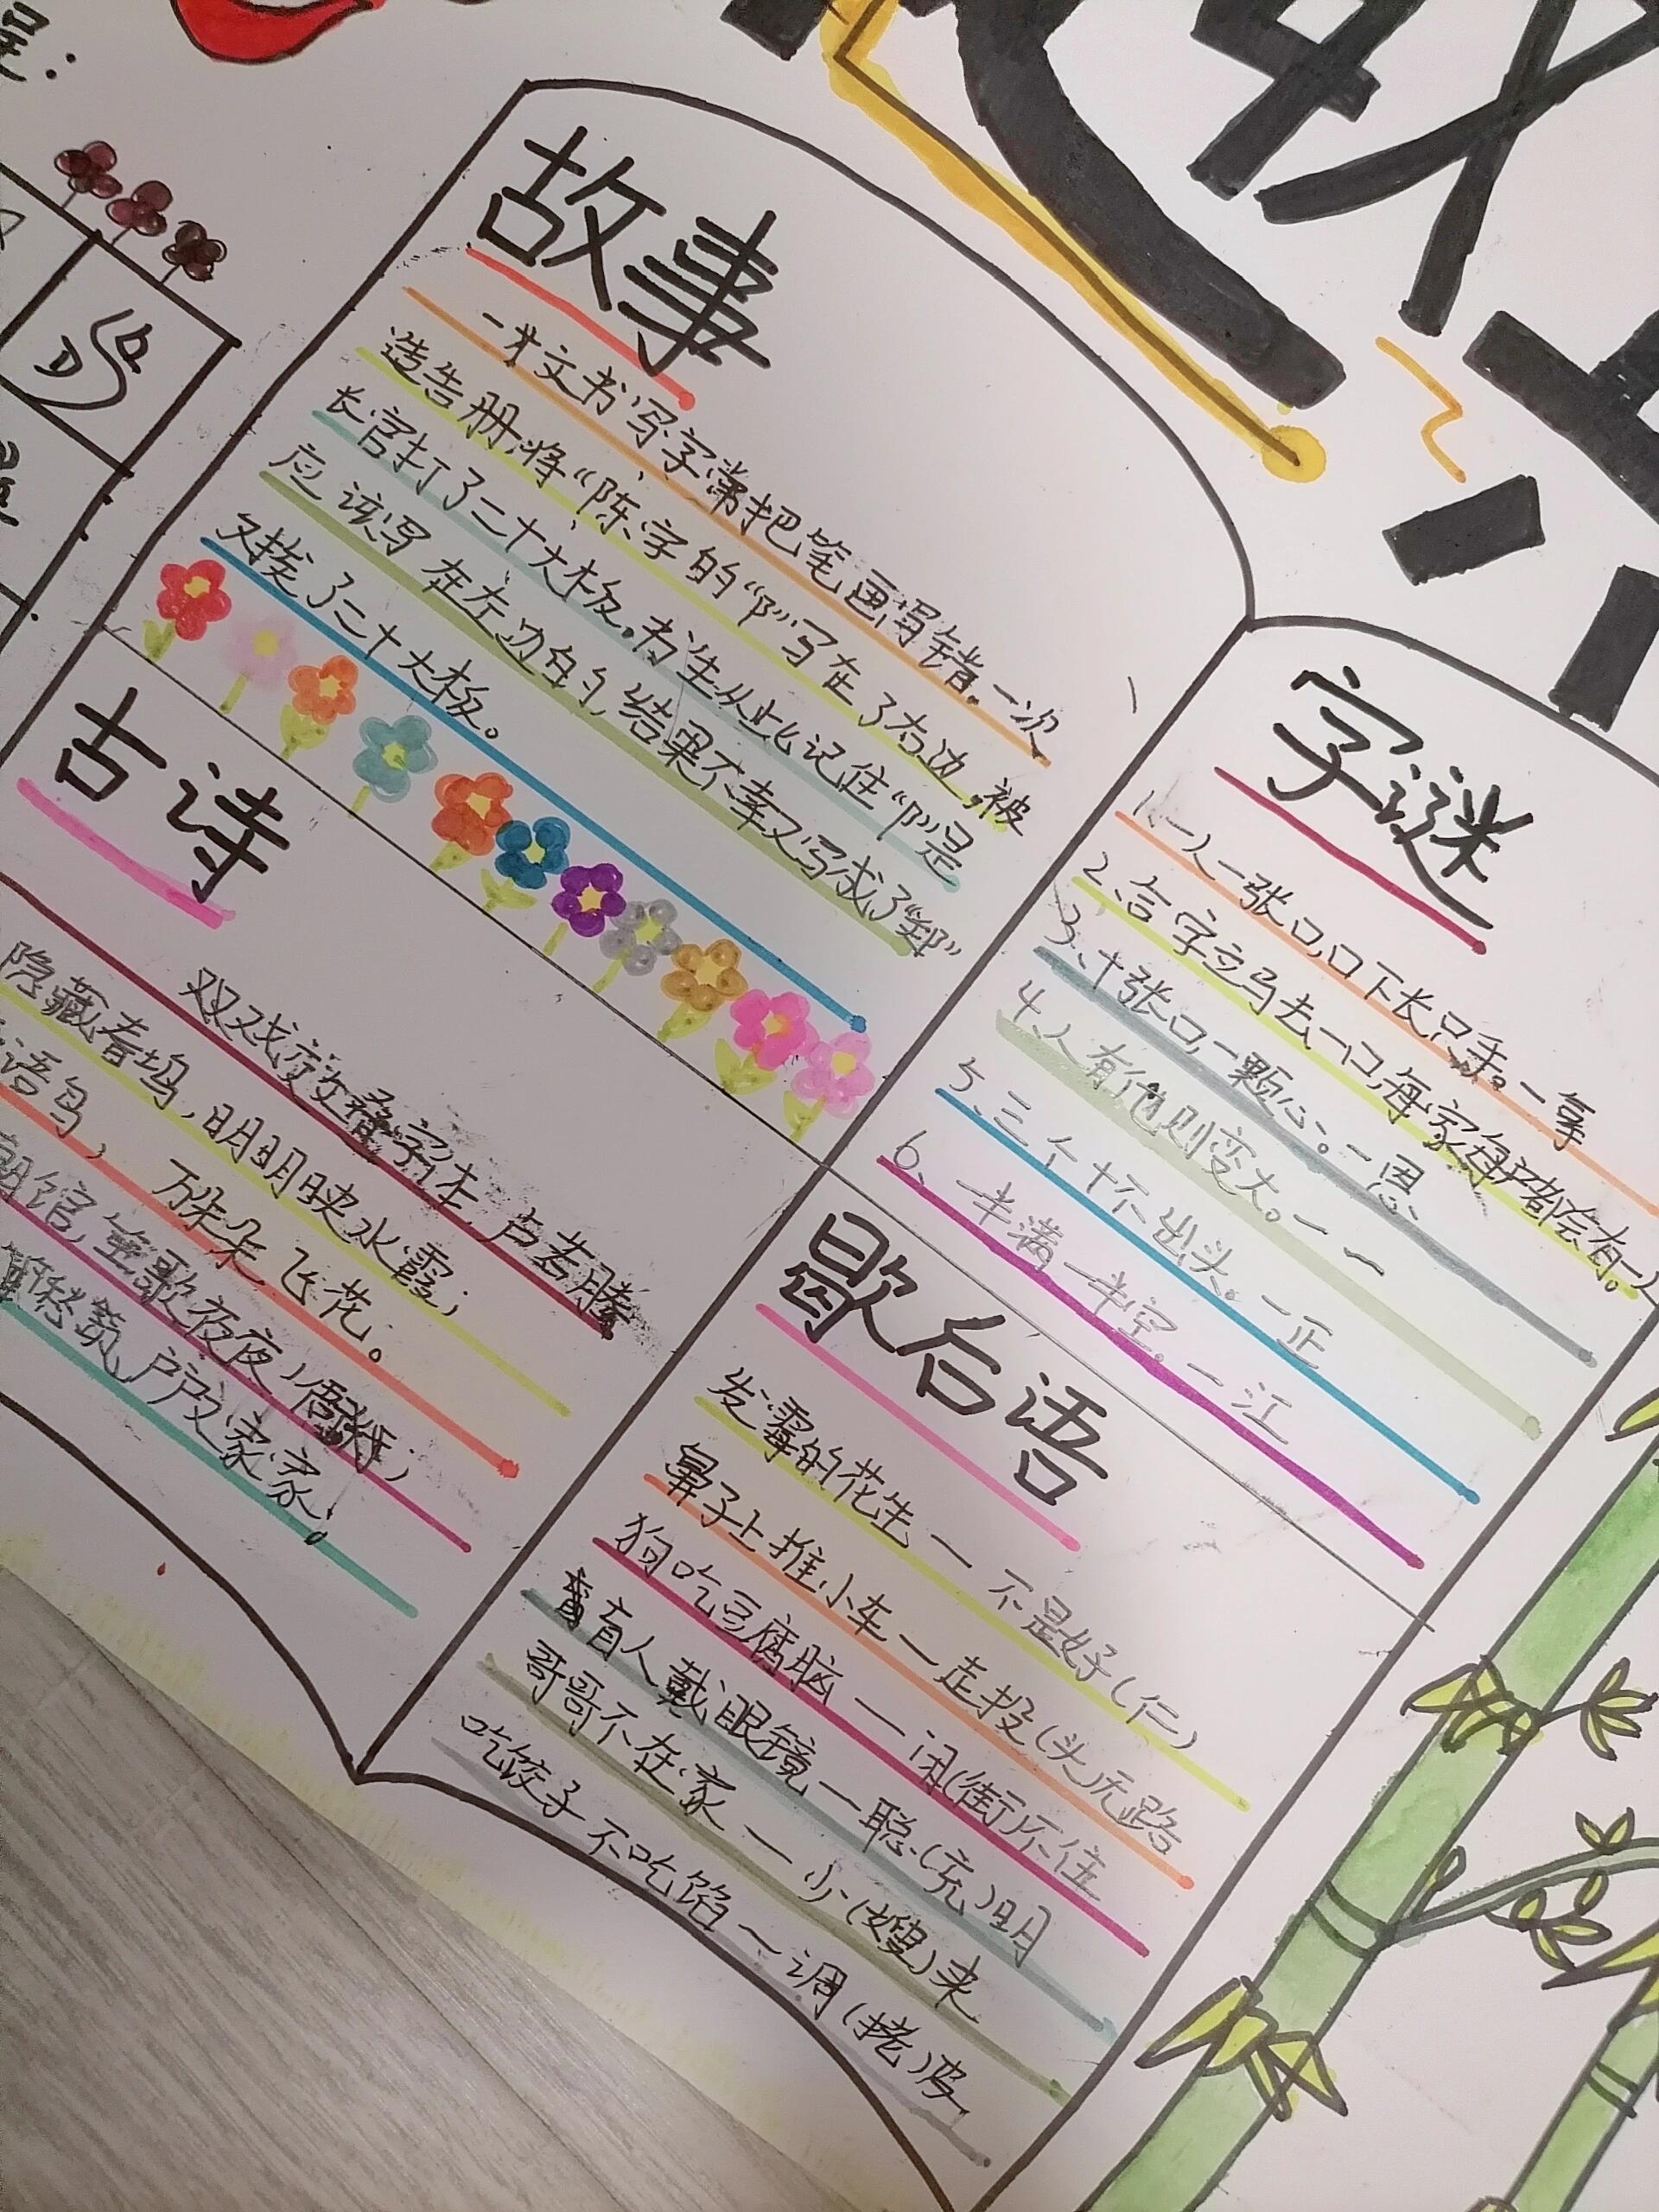 故事
一书文书写字常把笔画写错。一次
造告册,将“陈”字的“阝”写在了右边,被
长官打了二十大板。书生从此记住“阝”是
应该写在左边的,结果不幸又写成了“郑”
又挨了二十大板。
古诗
双双戏交叠字生,卢若腾
隐藏春坞,明明映水霞,
语鸟,万朵朵飞花。
馆,笙歌夜夜
松菊,户户家家。
字谜
1.一人一张口,口下长只手。一拿
2.言字立马去一口,每家每户都会有。一
3.十张口,一颗心。一思
4.人有他则变大。一一
5.三个十不出头。一正
6.一半满一半空。一江
歇后语
发霉的花生一不是好(仁)
鼻子上推小车一走投(头)无路
狗吃豆腐脑一闲(衔)不住
盲人戴眼镜一聪(充)明
哥哥不在家一少(嫂)来
吃饺子不吃馅一调(挑)皮